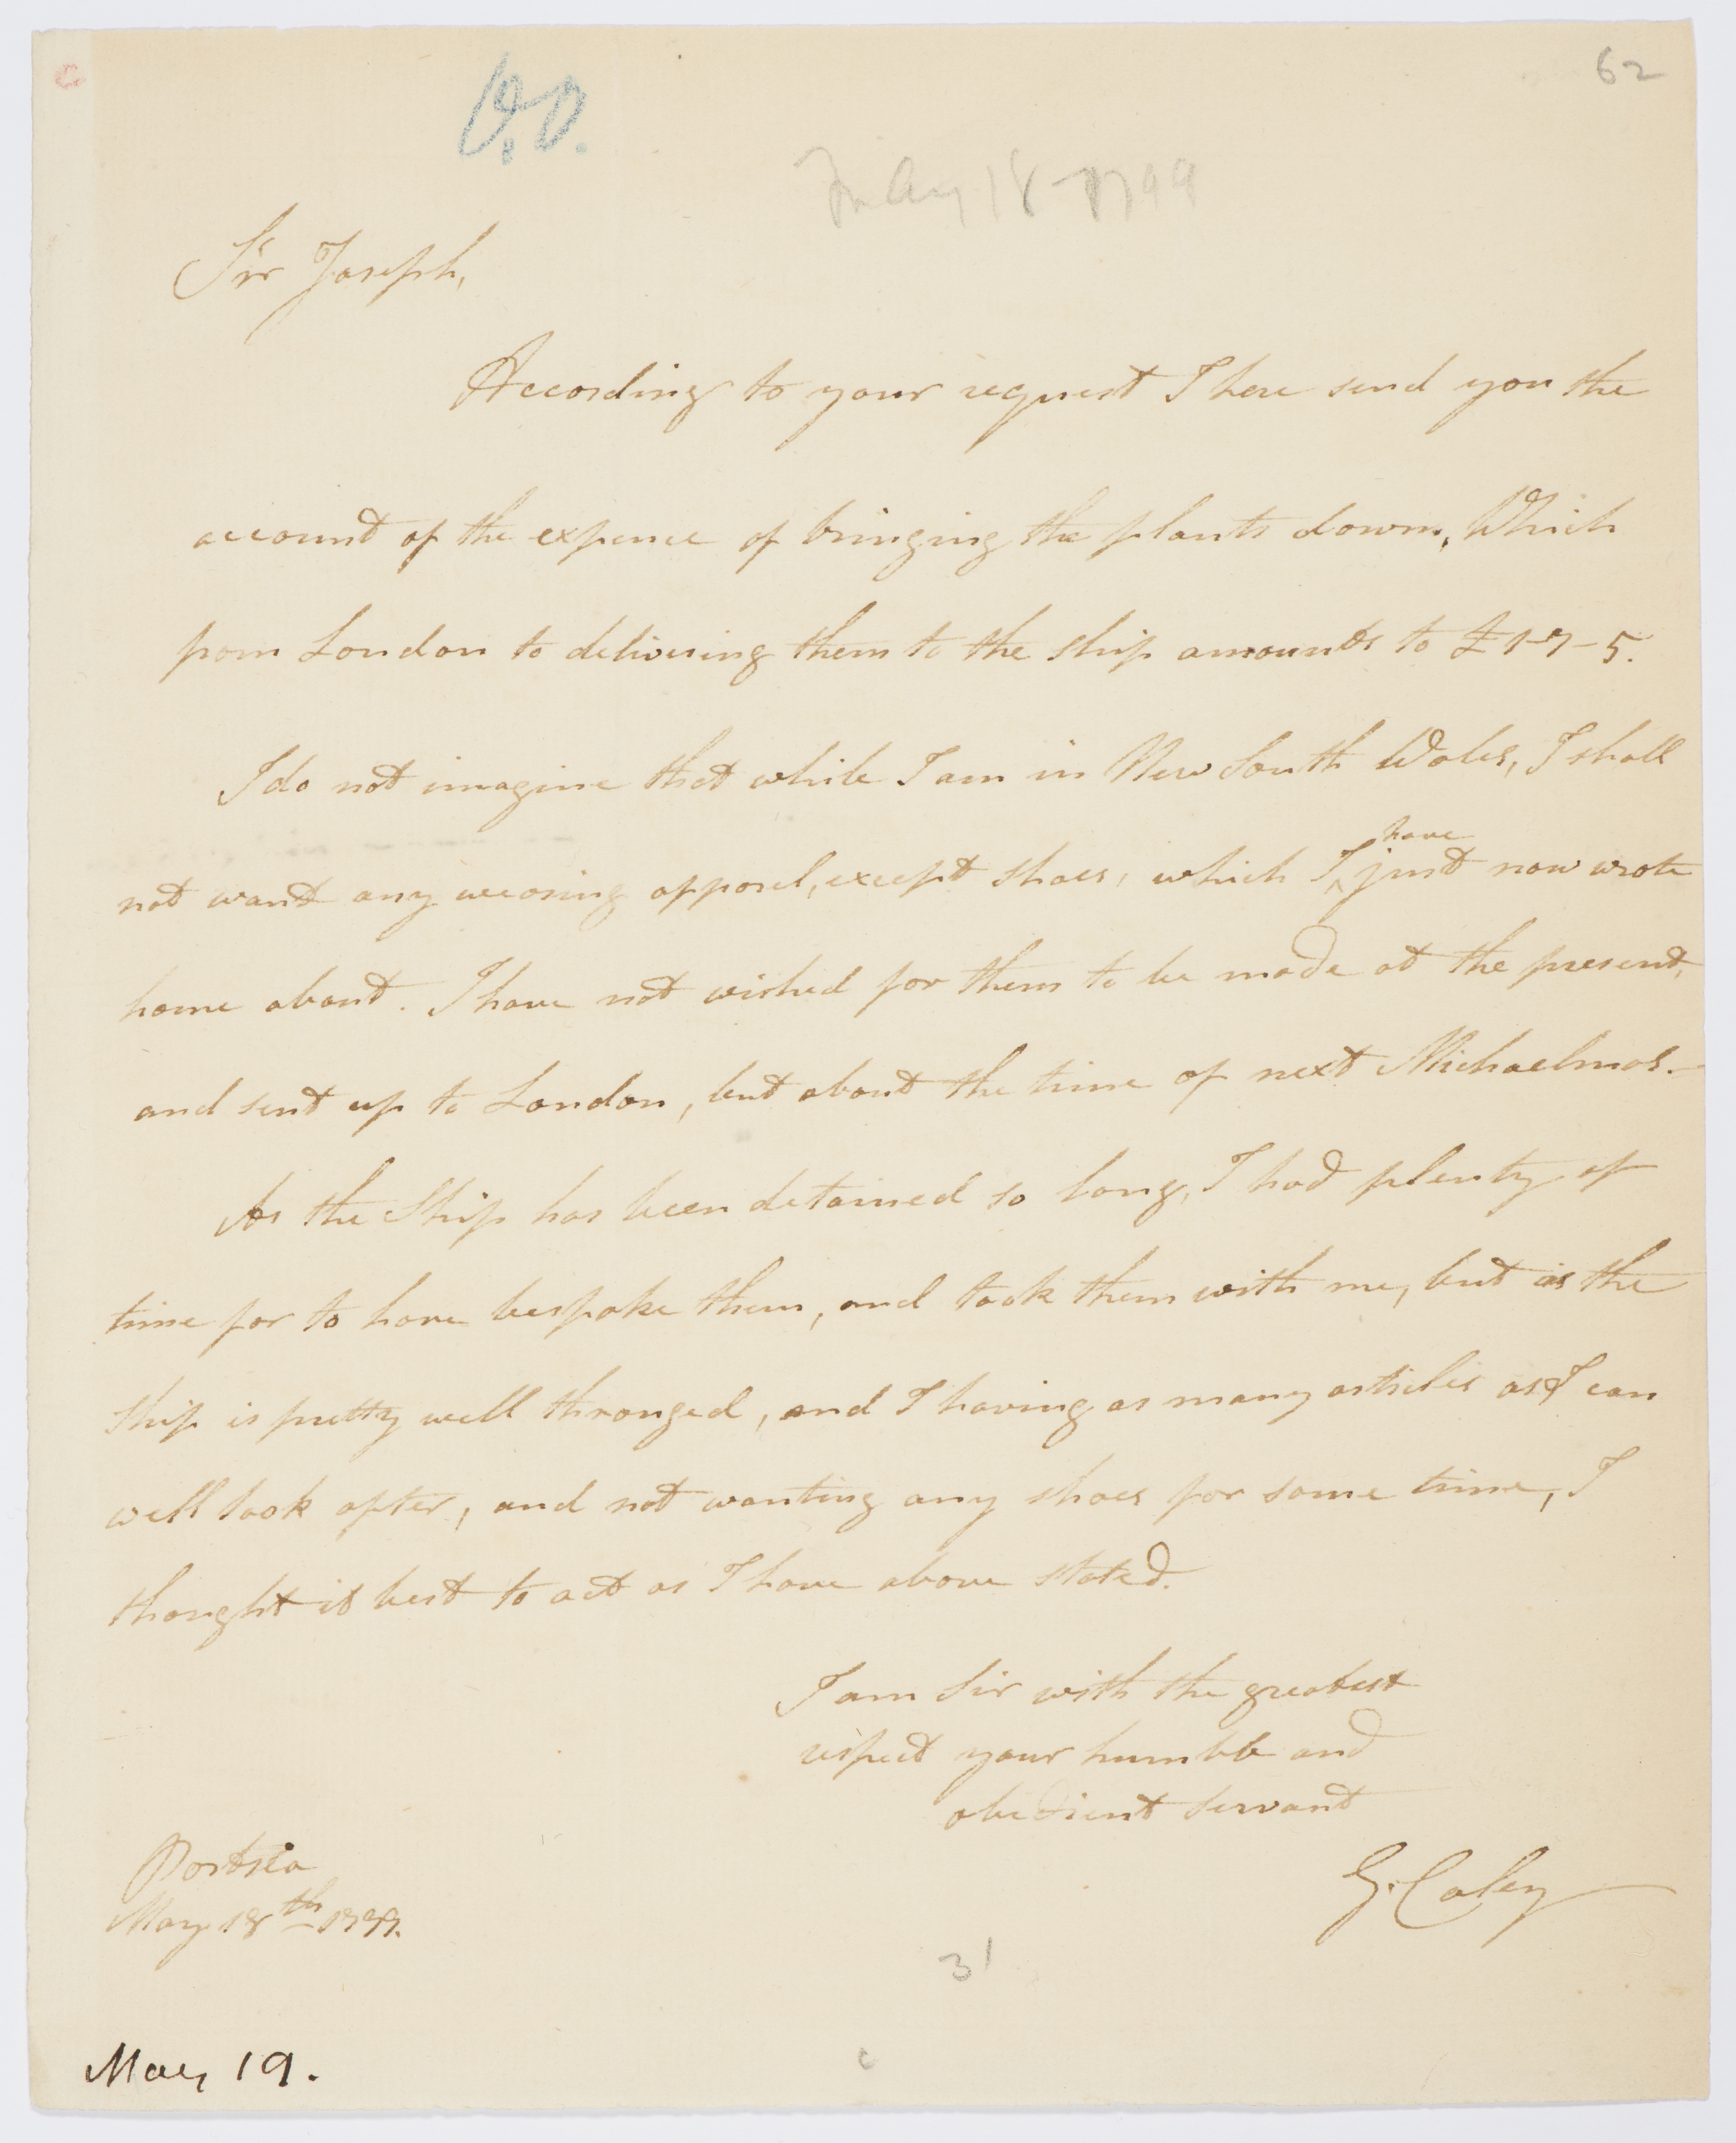 C
62
V.O.
May 18 - 1799
Sir Joseph,
According to your request I here send you the
account of the expence of bringing the plants down, Which
from London to delivering them to the ship amounts to £1-7-5.
I do not imagine that while I am in New South Wales, I shall
not want any wearing apparel, except shoes, which I ^have just now wrote
home about. I have not wished for them to be made at the present,
and sent up to London, but about the time of next Michaelmas.
As the Ship has been detained so long, I had plenty of
time for to have bespoke them, and took them with me, but as the
ship is pretty well thronged, and I having as many articles as I can
well look after, and not wanting any shoes for some time, I
thought it best to act as I have above stated.
I am Sir with the greatest
respect your humble and
obedient Servant
G. Caley
Portsea
May 18th 1799.
31
May 19.
c